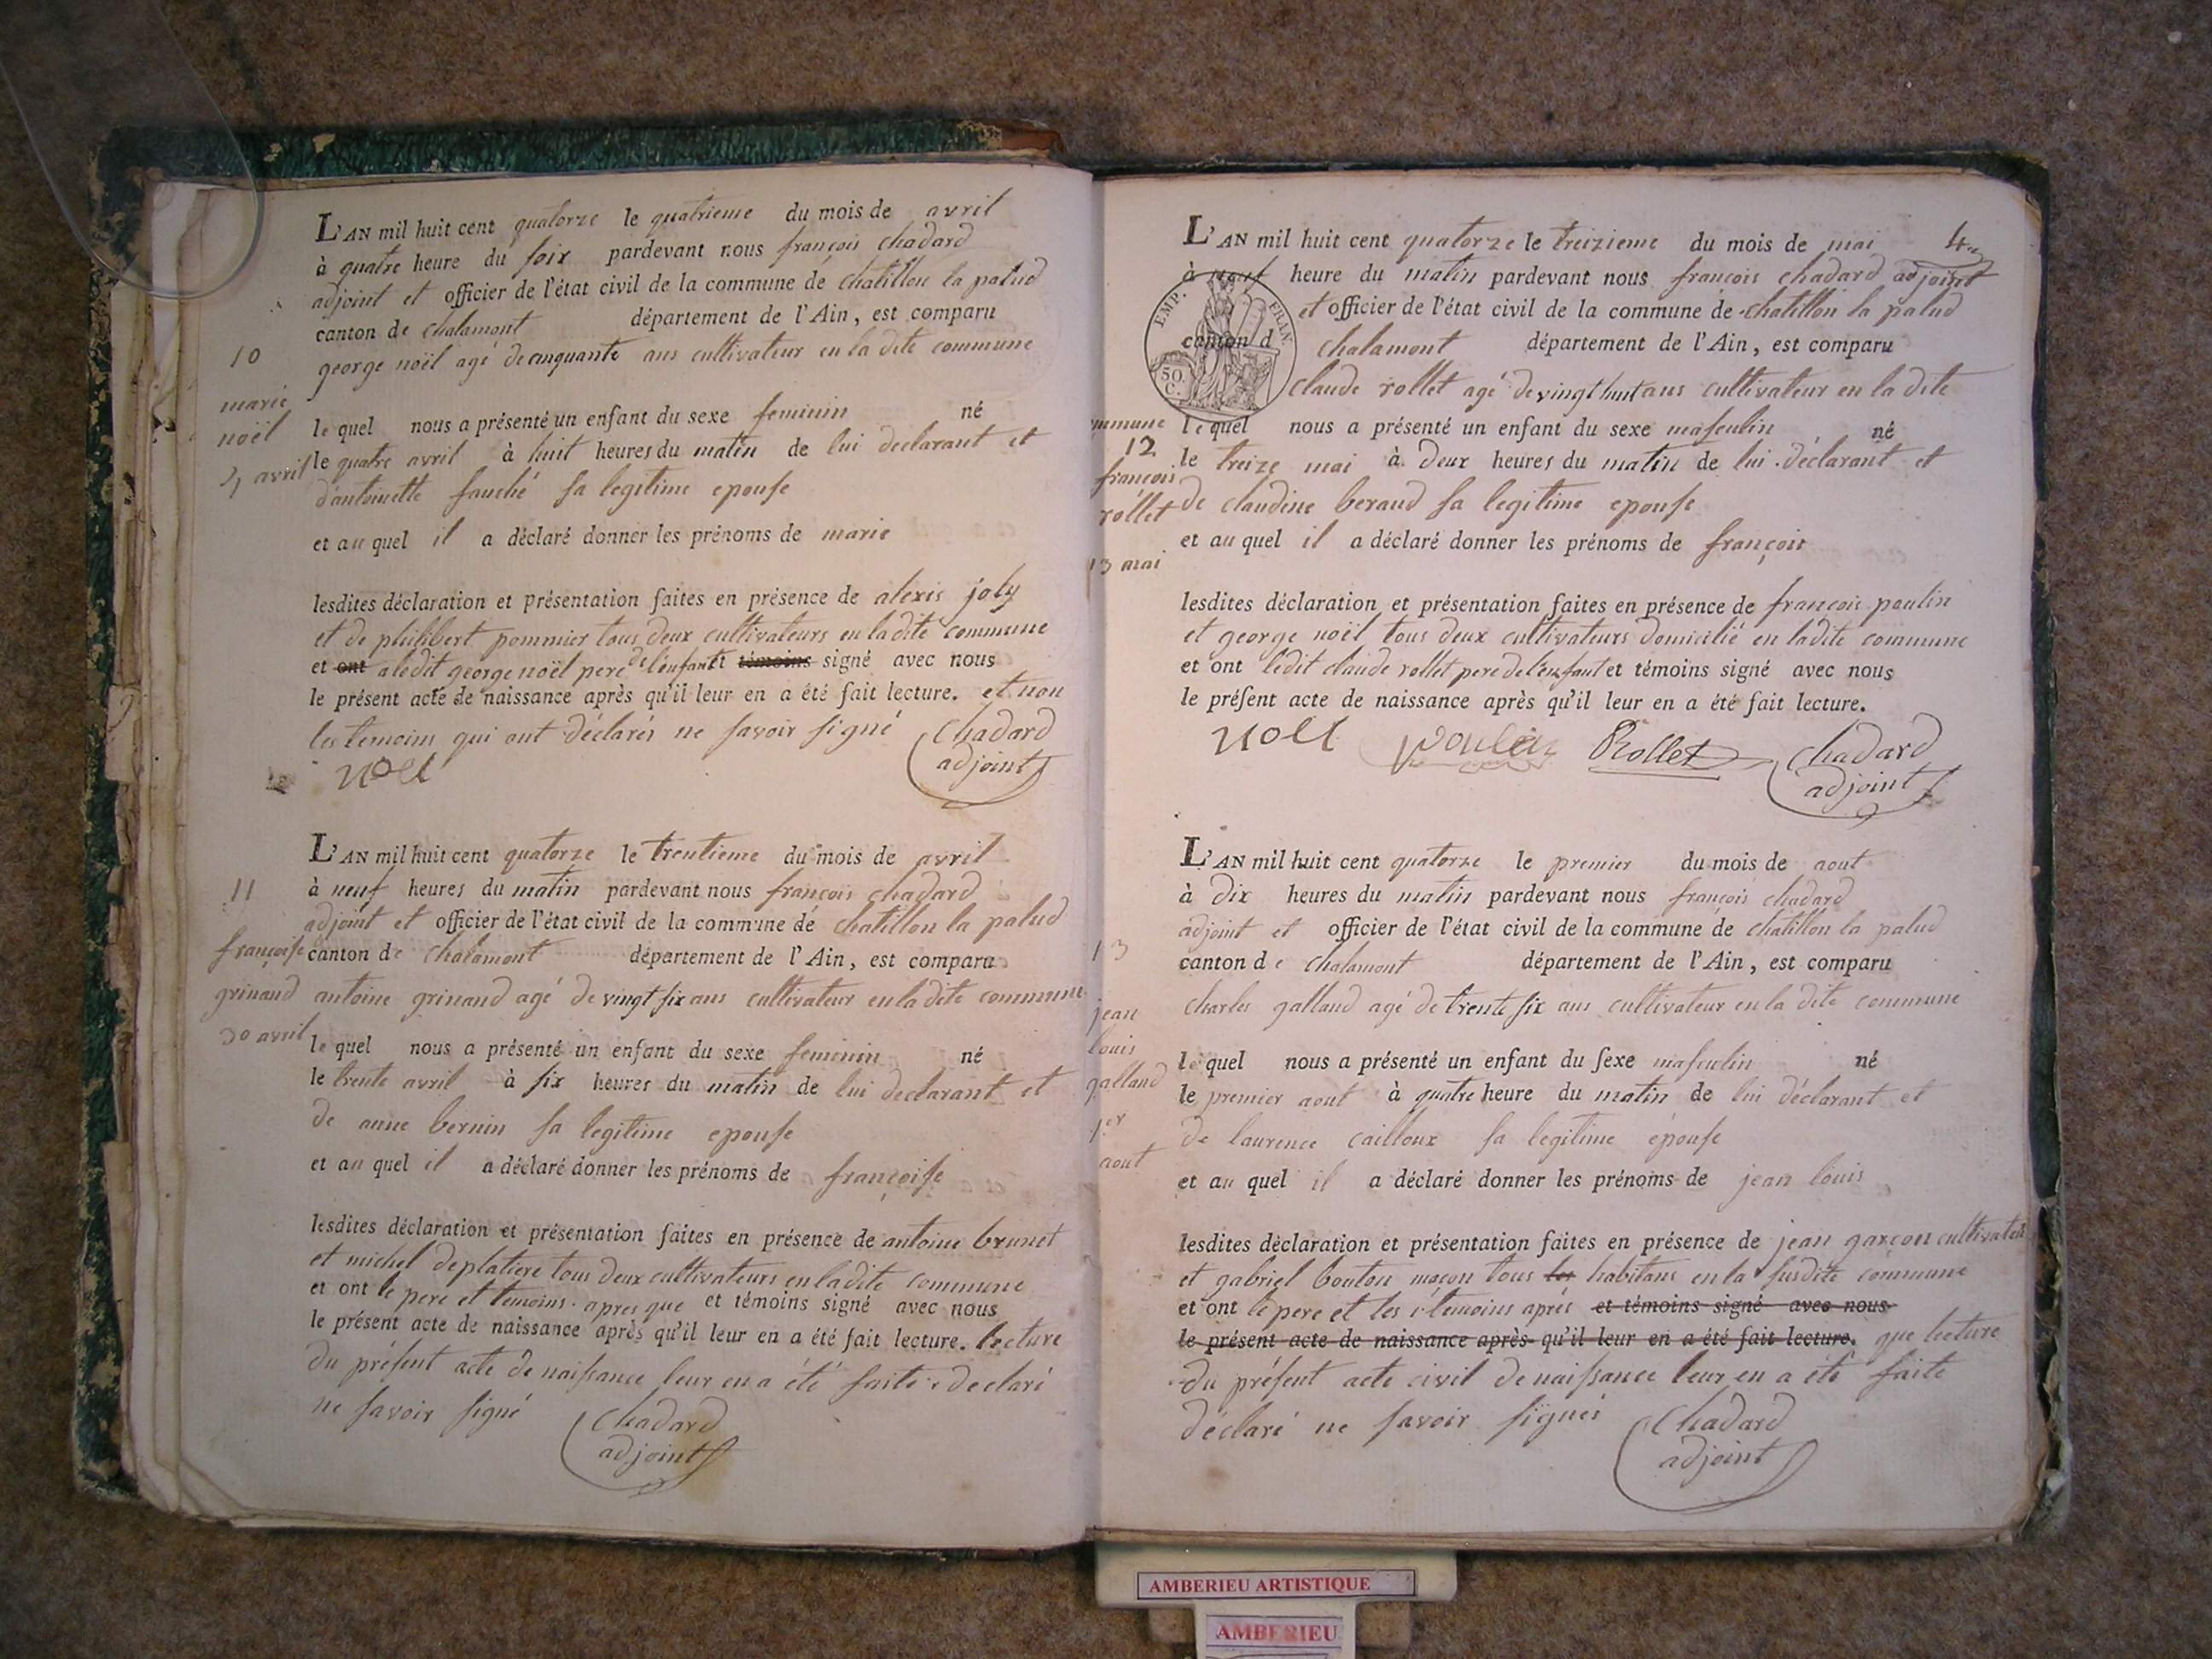 L'AN mil huit cent quatorze le quatrieme du mois de avril
à quatre heure du soir pardevant nous françois chadard
adjoint et officier de l'état civil de la commune de chatillon la palud
canton de chalamont département de l'Ain, est comparu
george noël agé de cinquante ans cultivateur en la dite commune
10
marie
noël
4 avril
le quel nous a présenté un enfant du sexe feminin né
le quatre avril à huit heures du matin de lui declarant et
d'antoinette fauché sa legitime epouse
et au quel il a déclaré donner les prénoms de marie
lesdites déclaration et présentation faites en présence de alexis joly
et de philibert pommier tous deux cultivateurs en ladite commune
et ont a ledit george noël pere de l'enfant et témoins signé avec nous
le présent acte de naissance après qu'il leur en a été fait lecture. et non
les temoins qui ont déclarés ne savoir signé
noel
Chadard
adjoint
L'AN mil huit cent quatorze le trentieme du mois de avril
à neuf heures du matin pardevant nous françois chadard
adjoint et officier de l'état civil de la commune de chatillon la palud
canton de chalamont département de l'Ain, est comparu
antoine grinand agé de vingt six ans cultivateur en la dite commune
11
françoise
grinand
30 avril
le quel nous a présenté un enfant du sexe feminin né
le trente avril à six heures du matin de lui declarant et
de anne bernin sa legitime epouse
et au quel il a déclaré donner les prénoms de françoise
lesdites déclaration et présentation faites en présence de antoine brunet
et michel deplatiere tous deux cultivateurs en ladite commune
et ont le pere et temoins. apres que et témoins signé avec nous
le présent acte de naissance après qu'il leur en a été fait lecture. lecture
du présent acte de naissance leur en a été faite. declaré
ne savoir signé
Chadard
adjoint
4
L'AN mil huit cent quatorze le treizieme du mois de mai
à neuf heure du matin pardevant nous françois chadard adjoint
et officier de l'état civil de la commune de chatillon la palud
canton d chalamont département de l'Ain, est comparu
EMP. FRAN.
50
C.
claude rollet agé de vingt huit ans cultivateur en la dite
commune le quel nous a présenté un enfant du sexe masculin né
12
françois
rollet
13 mai
le treize mai à deux heures du matin de lui déclarant et
de claudine beraud sa legitime epouse
et au quel il a déclaré donner les prénoms de françois
lesdites déclaration et présentation faites en présence de françois poulin
et george noël tous deux cultivateurs domicilié en ladite commune
et ont ledit claude rollet pere de l'enfant et témoins signé avec nous
le présent acte de naissance après qu'il leur en a été fait lecture.
noel poulin Rollet Chadard
adjoint
L'AN mil huit cent quatorze le premier du mois de aout
à dix heures du matin pardevant nous françois chadard
adjoint et officier de l'état civil de la commune de chatillon la palud
canton de chalamont département de l'Ain, est comparu
charles galland agé de trente six ans cultivateur en la dite commune
13
jean
louis
galland
1er
aout
le quel nous a présenté un enfant du sexe masculin né
le premier aout à quatre heure du matin de lui déclarant et
de laurence cailloux sa legitime épouse
et au quel il a déclaré donner les prénoms de jean louis
lesdites déclaration et présentation faites en présence de jean garçon cultivateur
et gabriel bouton maçon tous les habitans en la susdite commune
et ont le pere et les temoins après et témoins signé avec nous
le présent acte de naissance après qu'il leur en a été fait lecture. que lecture
du présent acte civil de naissance leur en a été faite
déclaré ne savoir signés
Chadard
adjoint
AMBERIEU ARTISTIQUE
AMBERIEU